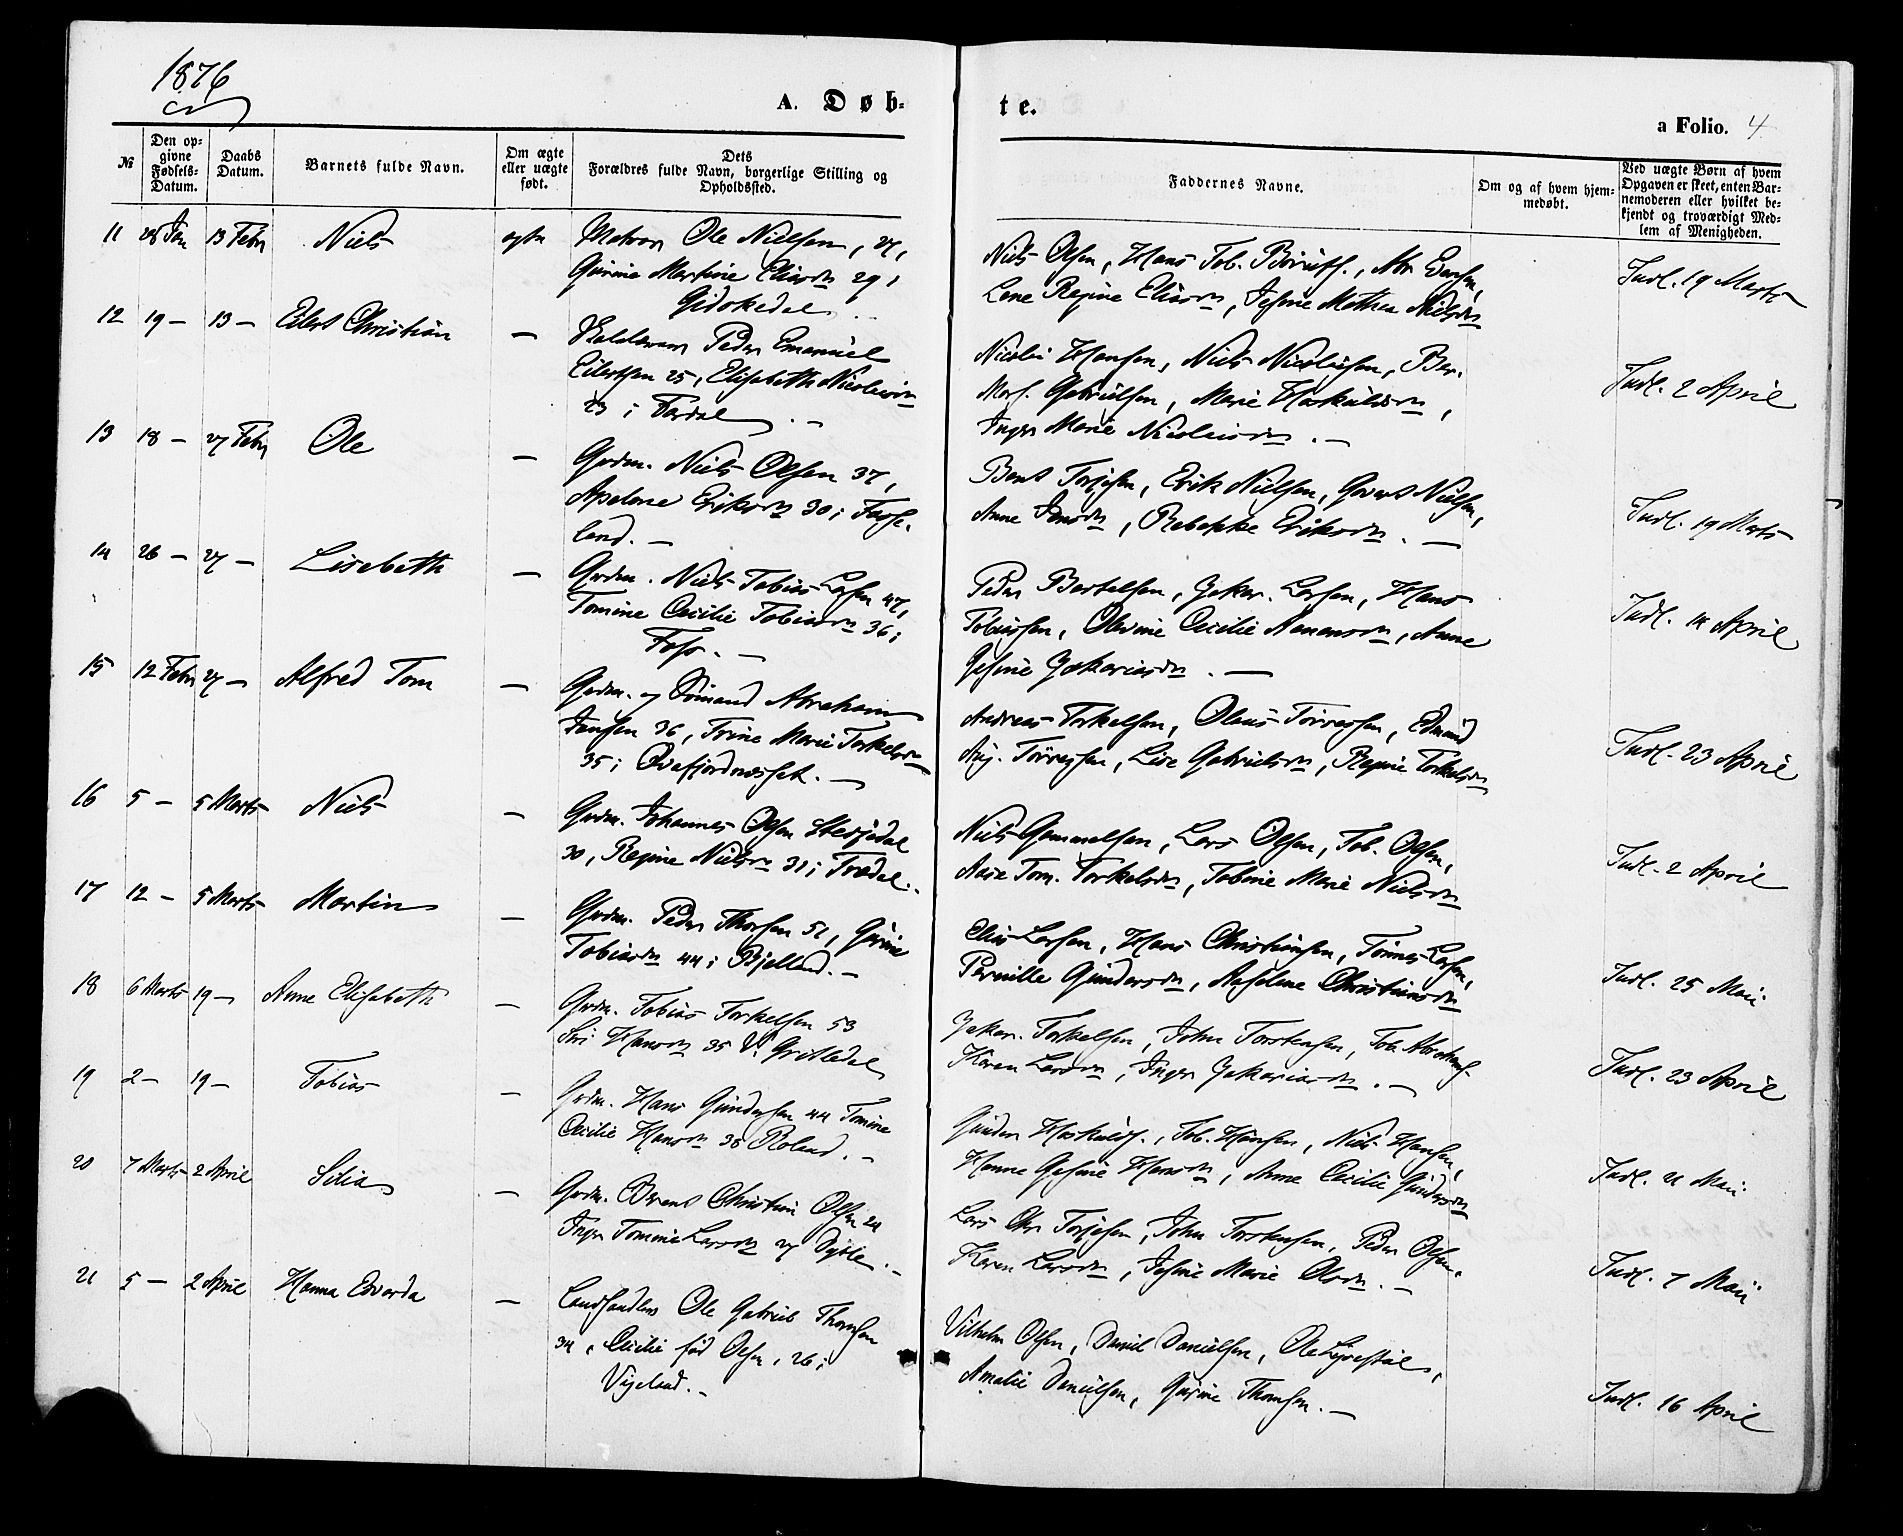 1876
A. Døb-
te.
a Folio. 4
№
Den op-
givne
Fødsels-
Datum.
Daabs
Datum.
Barnets fulde Navn.
Om ægte
eller uægte
født.
Dets
Forældres fulde Navn, borgerlige Stilling og
Opholdssted.
Faddernes Navne.
Om og af hvem hjem-
medøbt.
Ved uægte Børn af hvem
Opgaven er skeet, enten Bar-
nemoderen eller hvilket be-
kjendt og troværdigt Med-
lem af Menigheden.
11 28 Jan 13 Febr Niels ægte
Ole Nielsen, 27,
Gurine Martine Eliasd 29,
Gidskedal
Niels Olsen, Hans Tob.
Lene Regine Eliasd, Jesine Mathea Nielsd
Indl. 19 Marts
12 19 – 13 – Eilert Christian –
Peder Emanuel
Eilertsen 25, Elisabeth Nicolaisd
23 i Fardal. –
Nicolai Hansen, Niels Nicolaisen, Ber.
Mart. Gabrielsen, Marie Haskuldsd,
Inger Marie Nicolaisd. –
Indl. 2 April
13 18 – 27 Febr Ole –
Grdm. Niels Olsen 37,
Apelone Eriksd 30 i Fosse-
land. –
Bent Torjesen, Erik Nielsen, Govert Nielsen,
Anne Jensd, Rebekke Eriksd. –
Indl. 19 Marts
14 26 – 27 – Lisebeth –
Grdm. Niels Tobias Larsen 47,
Tomine Cecilie Tobiasd 36 i
Foss. –
Peder Bertelsen, Zakar. Larsen, Hans
Tobiassen, Olevine Cecilie Aanensd, Anne
Gesine Zakariasd. –
Indl. 14 April
15 12 Febr 27 – Alfred Tom –
Grdm. og Sømand Abraham
Jensen 36, Trine Marie Torkelsd
35 i
Andreas Torkelsen, Olaus Tørressen, Edmund
Aug. Tørressen, Lise Gabrielsd, Regine Torkelsd
Indl. 23 April
16 5 – 5 Marts Niels –
Grdm. Johannes Olsen
30, Regine Nielsd 31 i Trædal. –
Niels Gommelsen, Lars Olsen, Tob. Olsen,
Aasa Tom. Torkelsd, Tobine Marie Nielsd
Indl. 2 April
17 12 – 5 Marts Martin –
Grdm. Peder Thorsen 51, Gurine
Tobiasd 44 i Bjelland. –
Elias Larsen, Hans Christiansen, Tønnes Larsen,
Pernille Gundersd, Aaselene Christiansd
Indl. 25 Mai
18 6 Marts 19 – Anne Elisabeth –
Grdm. Tobias Torkelsen 53
Siri Hansd 35 V. Gritledal
Zakar. Torkelsen, John Torstensen, Tob. Abrahams.
Karen Larsd, Inger Zakariasd. –
Indl. 23 April
19 2 – 19 – Tobias –
Grdm. Hans Gundersen 44 Tomine
Cecilie Hansd 35 Roland. –
Gunder Haskulds., Tob. Hansen, Niels Hansen,
Hanne Gesine Hansd, Anne Cecilie Gundersd
Indl. 21 Mai
20 7 Marts 2 April Silia –
Grdm. Berent Christian Olsen 24
Inger Tomine Larsd 27 Dyble. –
Lars Chr Torjesen, John Torstensen, Peder Olsen,
Karen Larsd, Jesine Marie Olsd. –
Indl. 7 Mai
21 5 – 2 April Hanna Edvarda –
Landhandler Ole Gabriel Thomsen
34, Cecilie fød Olsen, 26 i
Vigeland. –
Vilhelm Olsen, Daniel Danielsen, Ole
Amalie Danielsen, Gurine Thomsen. –
Indl. 16 April